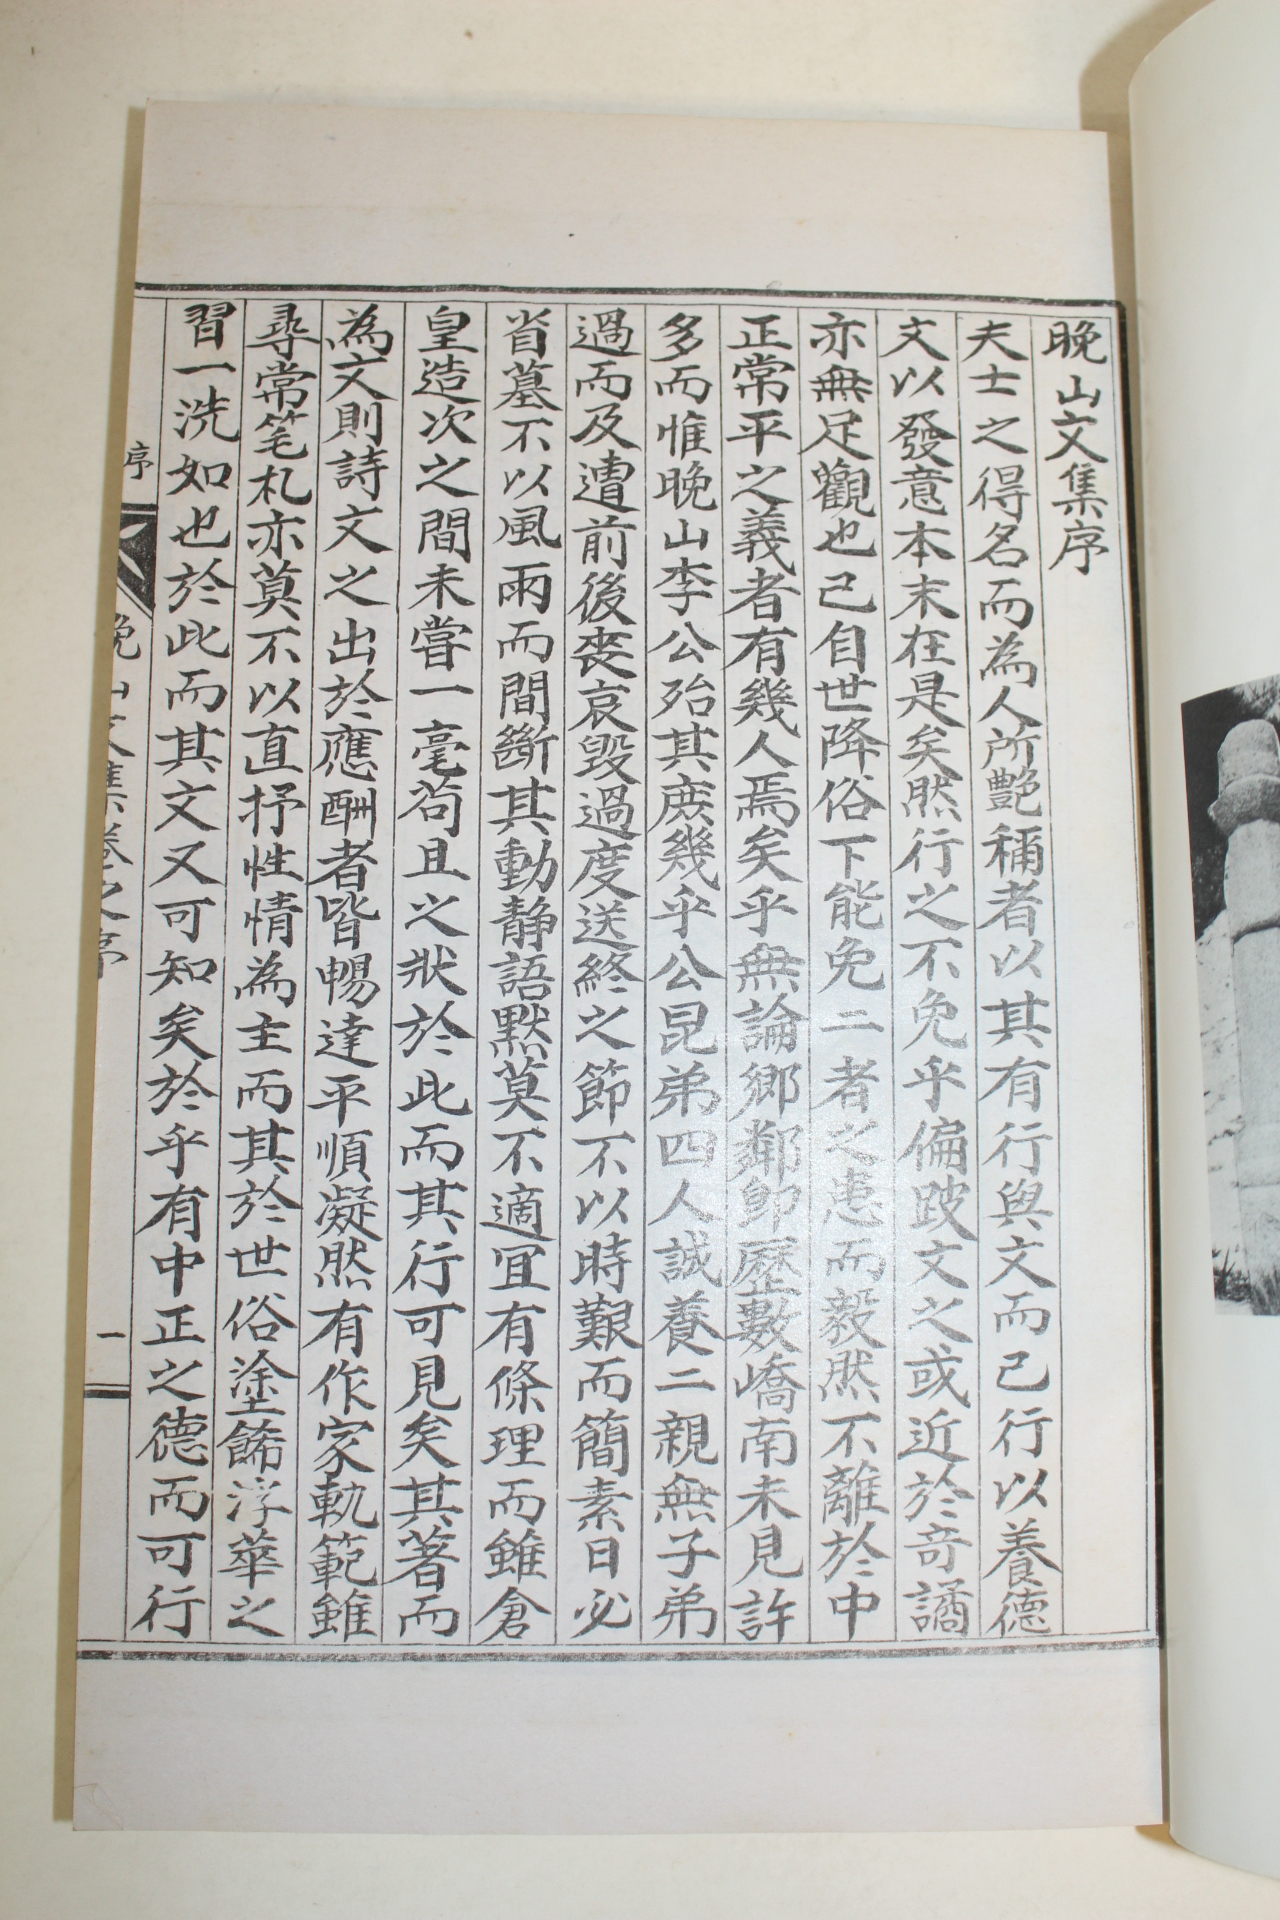 晚山文集序
夫士之得名而為人所艶稱者以其有行與文而已行以養德
文以發意本末在是矣然行之不免乎偏跛文之或近於奇譎
亦無足觀也已自世降俗下能免二者之患而毅然不離於中
正常平之義者有幾人焉矣乎無論鄉鄰卽歷數嶠南未見許
多而惟晚山李公殆其庶幾乎公昆弟四人誠養二親無子弟
過而及遭前後喪哀毁過度送終之節不以時艱而簡素日必
省墓不以風雨而間斷其動靜語默莫不適宜有條理而雖倉
皇造次之間未嘗一毫苟且之狀於此而其行可見矣其著而
為文則詩文之出於應酬者皆暢達平順凝然有作家軌範雖
尋常笔札亦莫不以直抒性情為主而其於世俗塗餙浮華之
習一洗如也於此而其文又可知矣於乎有中正之德而可行
序
晚山文集卷之序
一